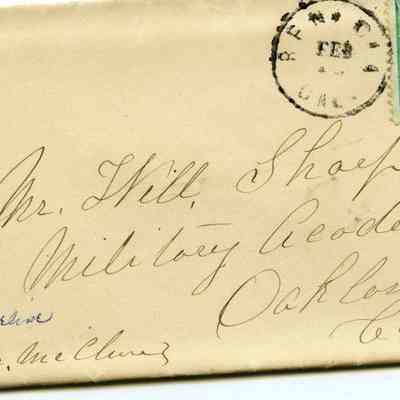 BENICIA
FEB
CAL.
Mr. Will. Sharp
Military Acade
Oaklan
C
McClures